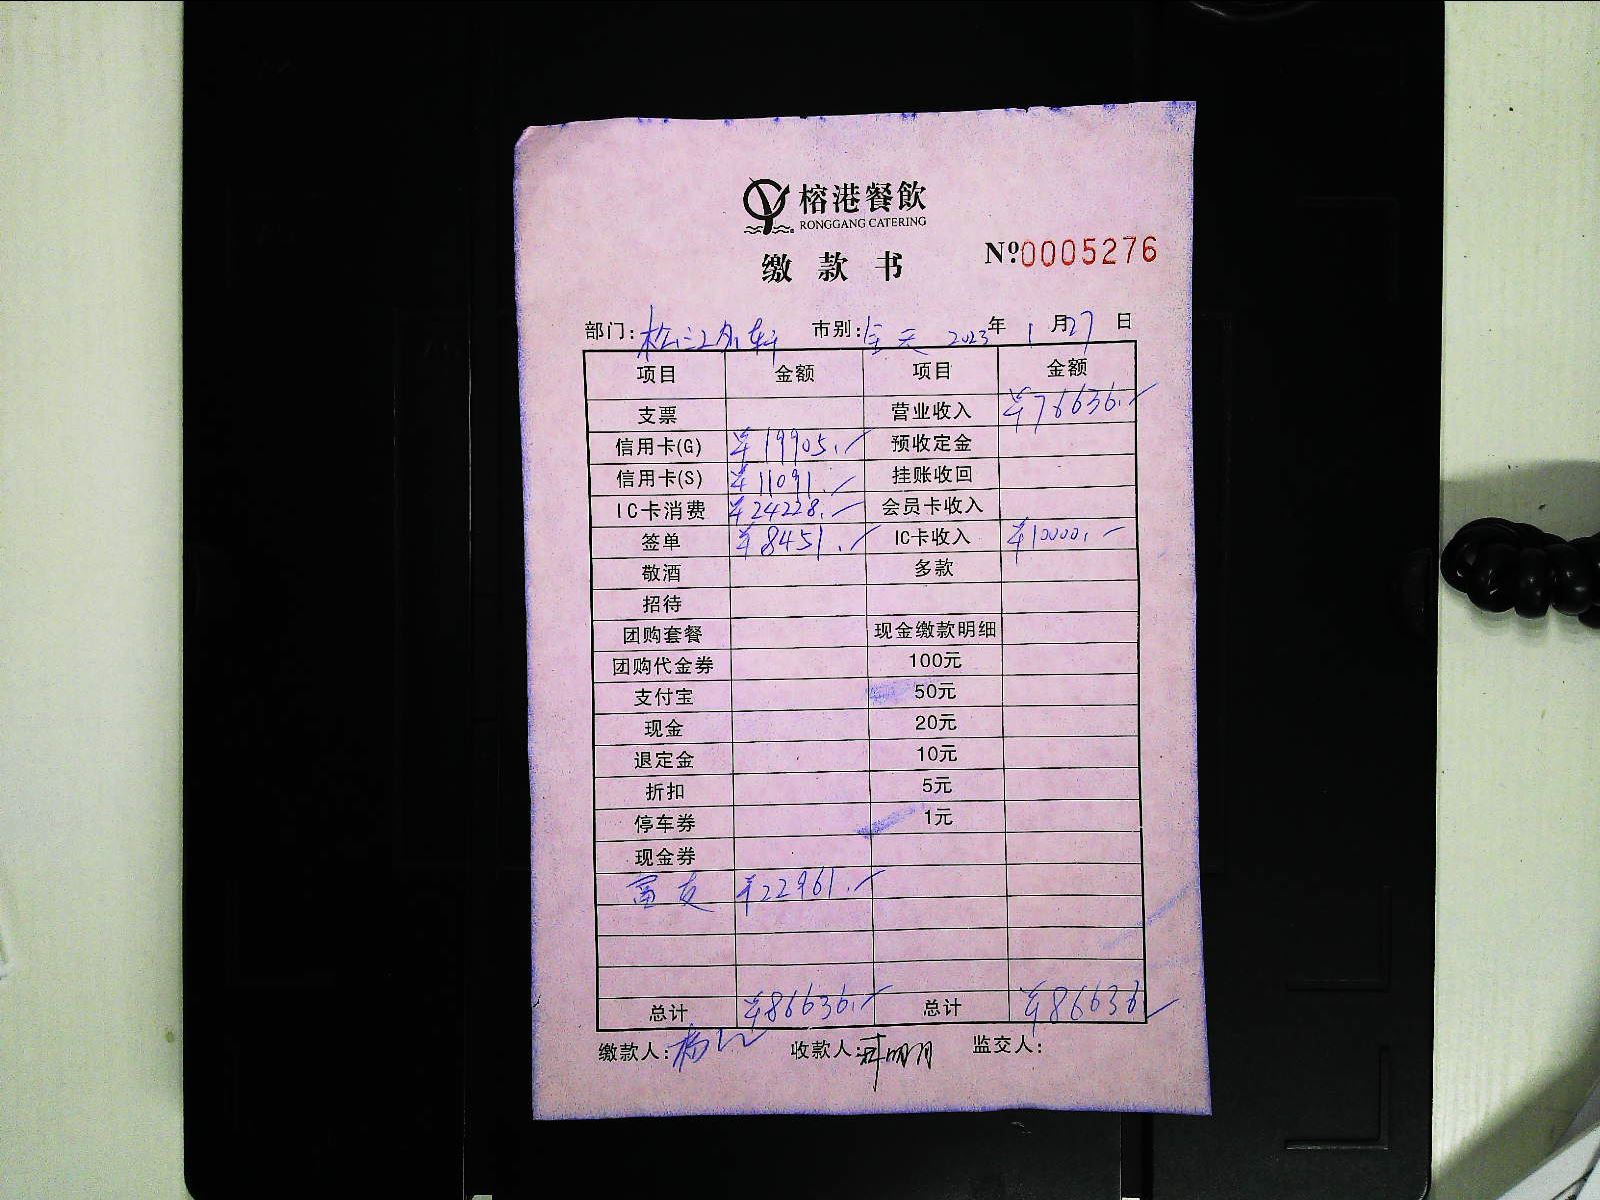 榕港餐飲
RONGGANG CATERING
缴款书
№0005276
部门: 松江 轩 市别: 全天 2023年1月27日
项目 金额 项目 金额
支票 营业收入 ¥76636.
信用卡(G) ¥19905. 预收定金
信用卡(S) ¥11091. 挂账收回
IC卡消费 ¥24228. 会员卡收入
签单 ¥8451. IC卡收入 ¥10000.
敬酒 多款
招待
团购套餐 现金缴款明细
团购代金券 100元
支付宝 50元
现金 20元
退定金 10元
折扣 5元
停车券 1元
现金券
富友 ¥22961.
总计 ¥86636. 总计 ¥86636
缴款人: 杨 收款人: 明月 监交人: